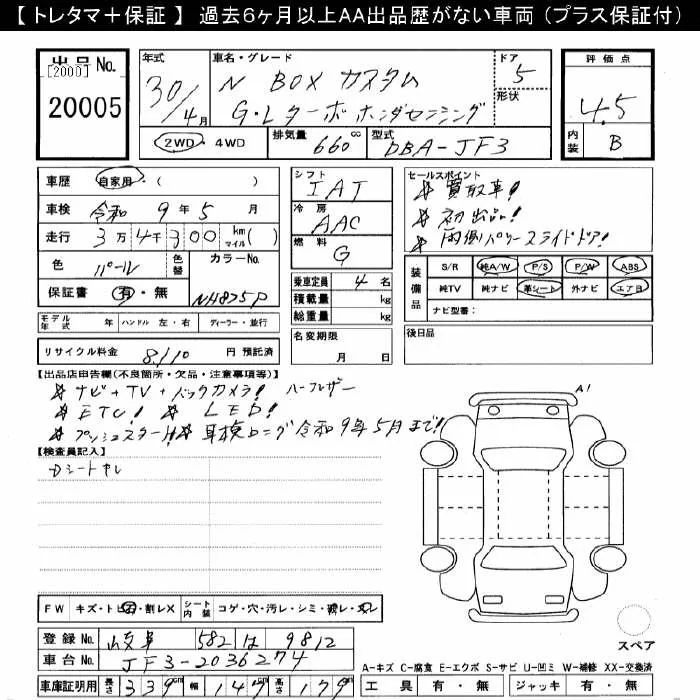 【 トレタマ＋保証 】 過去6ヶ月以上AA出品歴がない車両 (プラス保証付)
出品No.
[2000]
20005
年式
30/4月
車名・グレード
N BOX カスタム
G・Lターボホンダセンシング
ドア
5
形状
2WD・4WD
排気量
660cc
型式
DBA-JF3
評価点
4.5
内装
B
車歴 自家用・( )
車検 令和 9年 5月
走行 3万4千300 km マイル( )
色 パール 色替 カラーNo.
保証書 有・無 NH875P
シフト
IAT
冷房
AAC
燃料
G
乗車定員 4名
積載量 kg
総重量 kg
セールスポイント
☆ 買取車!
☆ 初出品!
☆ 両側パワースライドドア!
装備品
S/R 純A/W P/S P/W ABS
純TV 純ナビ 革シート 外ナビ エアB
ナビ型番:
モデル年式 年 ハンドル 左・右 ディーラー・並行
名変期限
月 日
後日品
リサイクル料金 8,110 円 預託済
【出品店申告欄(不良箇所・欠品・注意事項等)】
☆ ナビ+TV+バックカメラ! ハーフレザー
☆ ETC! ☆ LED!
☆ プッシュスタート! ☆ 車検ロング令和9年5月まで!
【検査員記入】
Dシートキレ
A1
FW キズ・トビ石・割レX シート内装 コゲ・穴・汚レ・シミ・破レ・スレ
登録No. 岐阜 582 は 9812
車台No. JF3-2036274
車庫証明用 長さ 339cm 幅 147cm 高さ 179cm
スペア
A-キズ C-腐食 E-エクボ S-サビ U-凹ミ W-補修 XX-交換済
工具 有・無 ジャッキ 有・無